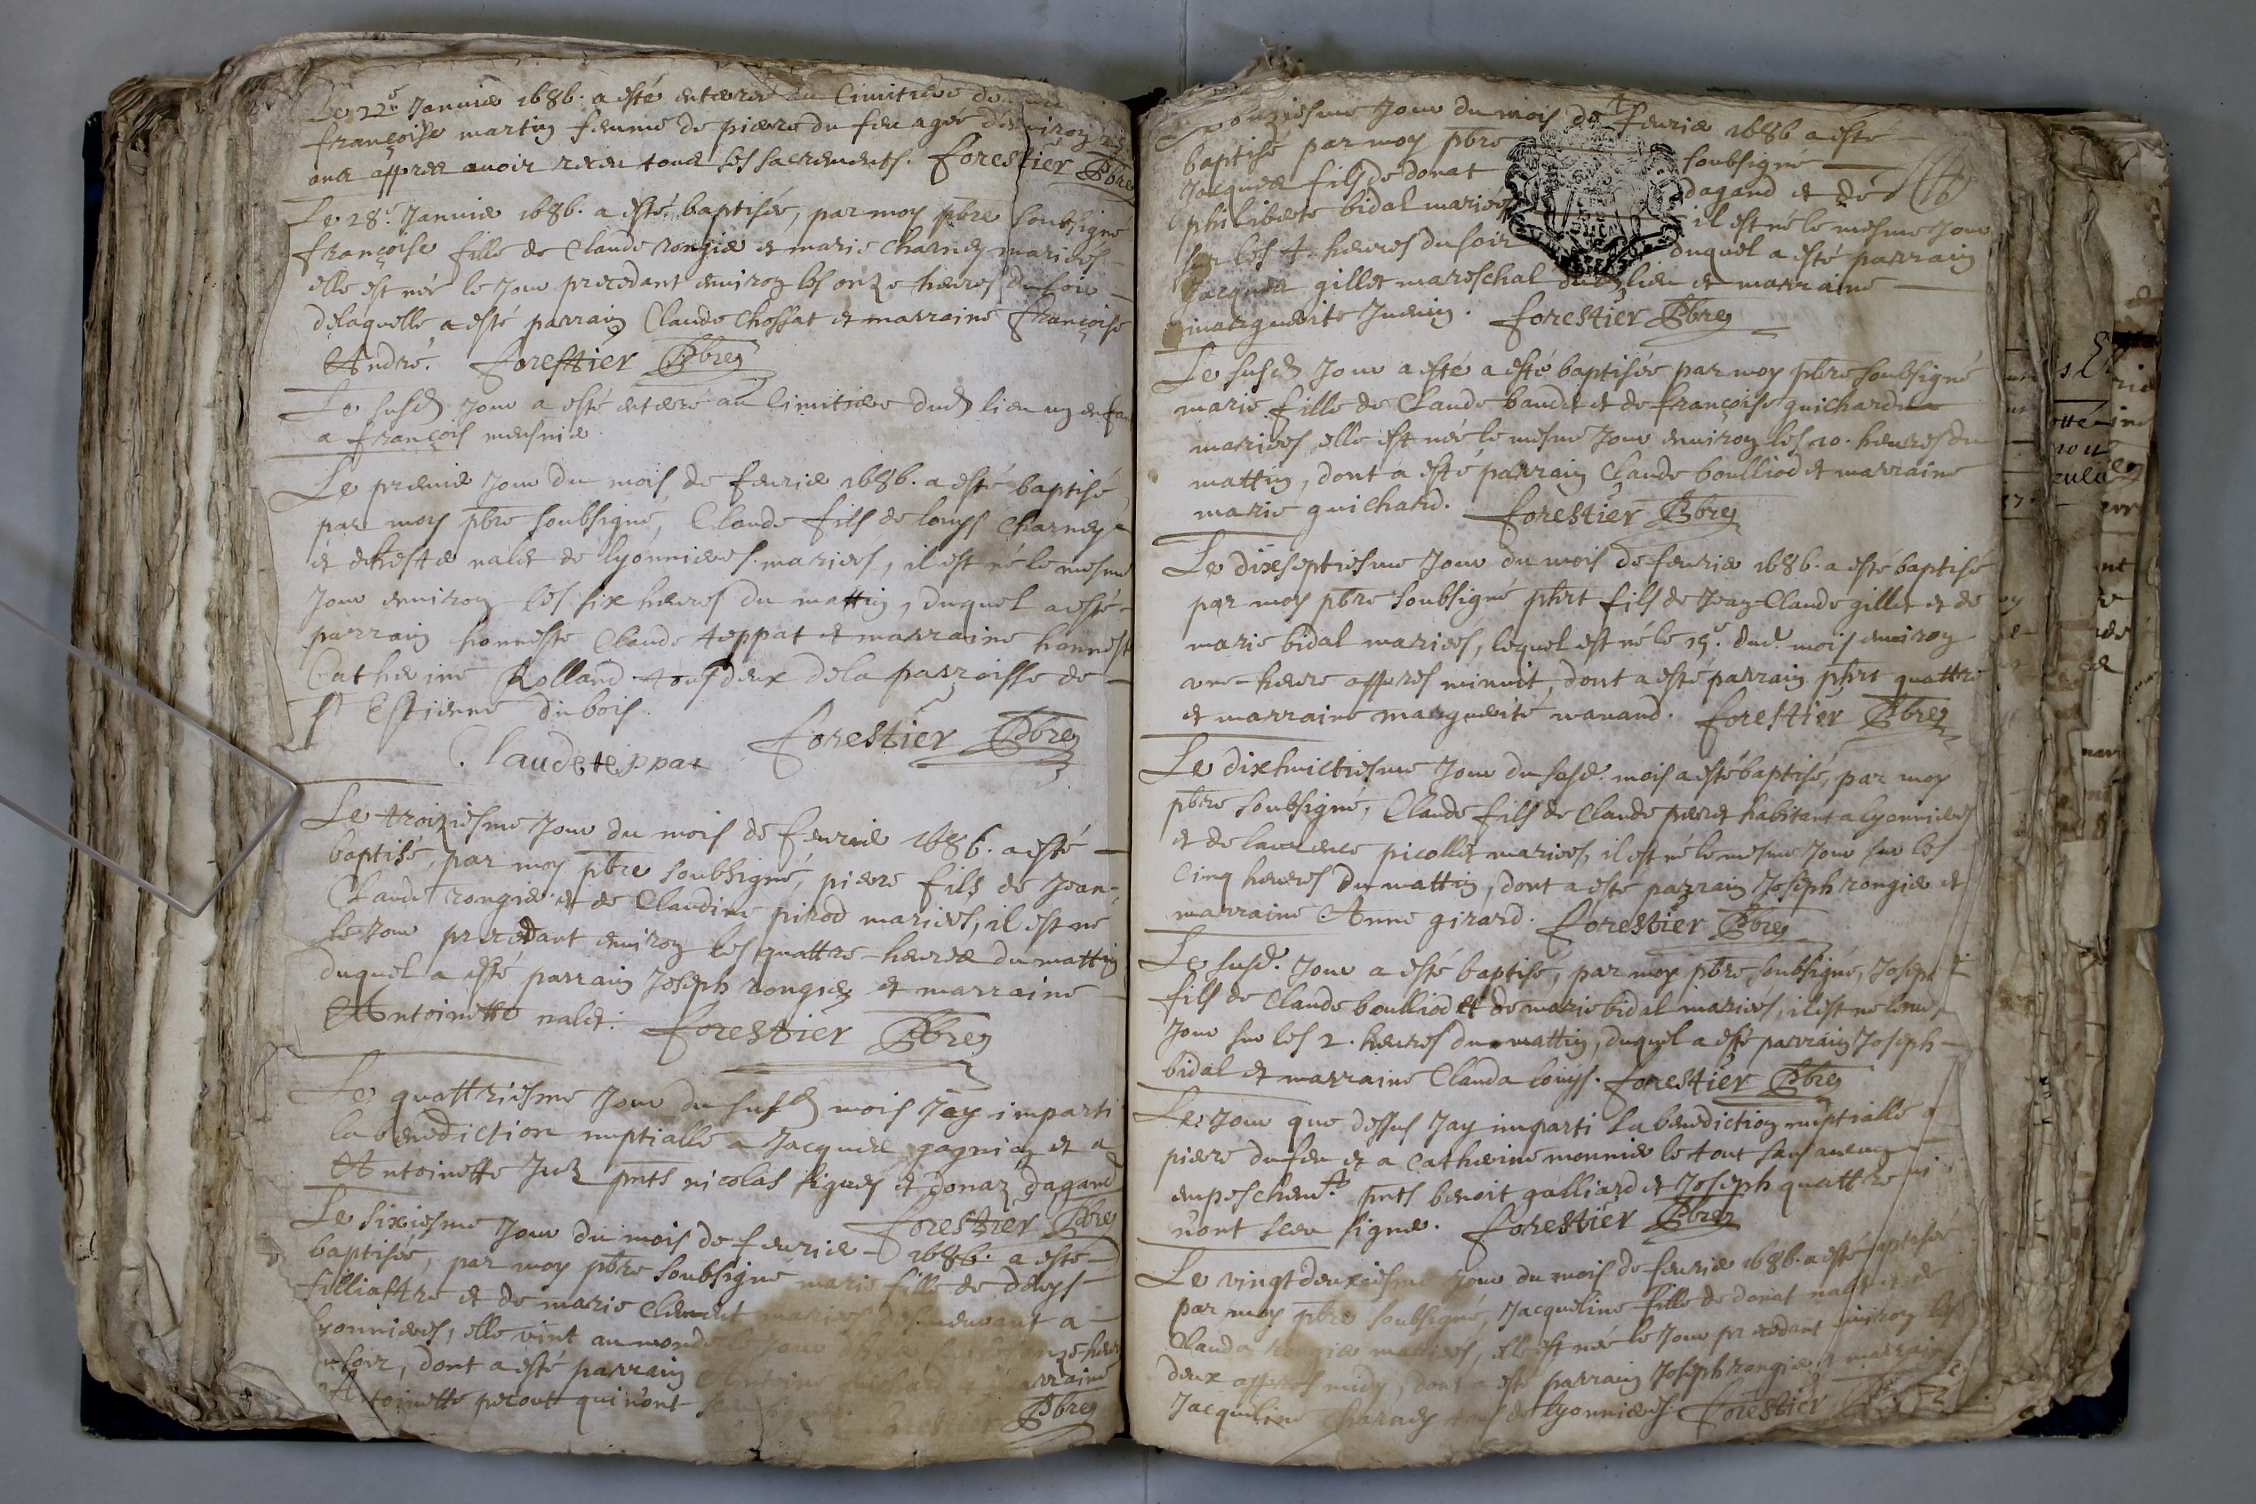 Le 22e Janvier 1686. a esté enterré au Cimitiere
françoise martin femme de pierre du feu agee d'environ
ans appres avoir receu tous ses sacrements. forestier Pbre
Le 28e Janvier 1686. a esté baptisée, par moy pbre soubsigné
françoise fille de Claude rongier et marie Charney mariés
elle est née le Jour precedant environ les onze heures du soir
delaquelle a esté parrain Claude Chossat et marraine françoise
André. forestier Pbre
Le susd Jour a esté enterré au Cimitiere dud lieu un enfan
a françois meusnier
Le premier Jour du mois de fevrier 1686. a esté baptisé
par moy pbre soubsigné, Claude fils de louys Charney
et nalet de lyonnieres mariés, il est né le mesme
Jour environ les six heures du mattin, duquel a esté
parrain honneste Claude teppat et marraine honnest
Catherine Rolland tous deux dela parroisse de
St Estienne du bois
Claude teppat forestier Pbre
Le troiziesme Jour du mois de fevrier 1686. a esté
baptisé, par moy pbre soubsigné, pierre fils de Jean
Claude rongier et de Claudine pirod mariés, il est né
le Jour precedant environ les quattre heures du mattin
duquel a esté parrain Joseph rongier et marraine
Antoinette nalet. forestier Pbre
Le quattriesme Jour du susd mois Jay imparti
la benediction nuptialle a Jacques gagnier et a
Antoinette pnts nicolas figuet et donat dagand
forestier Pbre
Le sixiesme Jour du mois de fevrier 1686. a esté
baptisée, par moy pbre soubsigné marie fille de denys
filliattre et de marie Clement mariés demeurant a
lyonnieres, elle vint au monde le Jour
soir, dont a esté parrain Antoine et marraine
Antoinette perout qui n'ont Pbre
Jour du mois de fevrier 1686 a esté
baptisé par moy pbre soubsigné
Jacques fils de donat dagand et de
philiberte bidal mariés il est né le mesme Jour
sur les 4 heures du soir duquel a esté parrain
Jacques gillet mareschal dud lieu et marraine
marguerite Juenin. forestier Pbre
Le susd Jour a esté a esté baptisée par moy pbre soubsigné
marie fille de Claude baudet et de françoise guichard
mariés, elle est née le mesme Jour environ les 10. heures du
mattin, dont a esté parrain Claude boulliod et marraine
marie guichard. forestier Pbre
Le dixseptiesme Jour du mois de fevrier 1686. a esté baptisé
par moy pbre soubsigné phrt fils de Jean Claude gillet et de
marie bidal mariés, lequel est né le 15e. dud. mois environ
une heure appres minuit, dont a esté parrain phrt quattre
et marraine marguerite nanand. forestier Pbre
Le dixhuictiesme Jour du susd. mois a esté baptisé, par moy
pbre soubsigné, Claude fils de Claude peret habitant a lyonnieres
et de laurence picollet mariés, il est né le mesme Jour sur les
Cinq heures du mattin, dont a esté parrain Joseph rongier et
marraine Anne girard. forestier Pbre
Le susd. Jour a esté baptisé, par moy pbre soubsigné, Joseph
fils de Claude boulliod et de marie bidal mariés, il est né le
Jour sur les 2. heures du mattin, duquel a esté parrain Joseph
bidal et marraine Clauda louys. forestier Pbre
Le Jour que dessus Jay imparti la benediction nuptialle a
pierre dufeu et a Catherine monnier le tout sans aucun
empeschemt. pnts benoit galliard et Joseph quattre
n'ont sceu signer. forestier Pbre
Le vingtdeuxiesme Jour du mois de fevrier 1686. a esté baptisée
par moy pbre soubsigné, Jacqueline fille de donat nalet et de
Clauda rongier mariés, elle est née le Jour precedant environ les
deux appres midy, dont a esté parrain Joseph rongier et marraine
Jacqueline Charney de lyonnieres. forestier Pbre